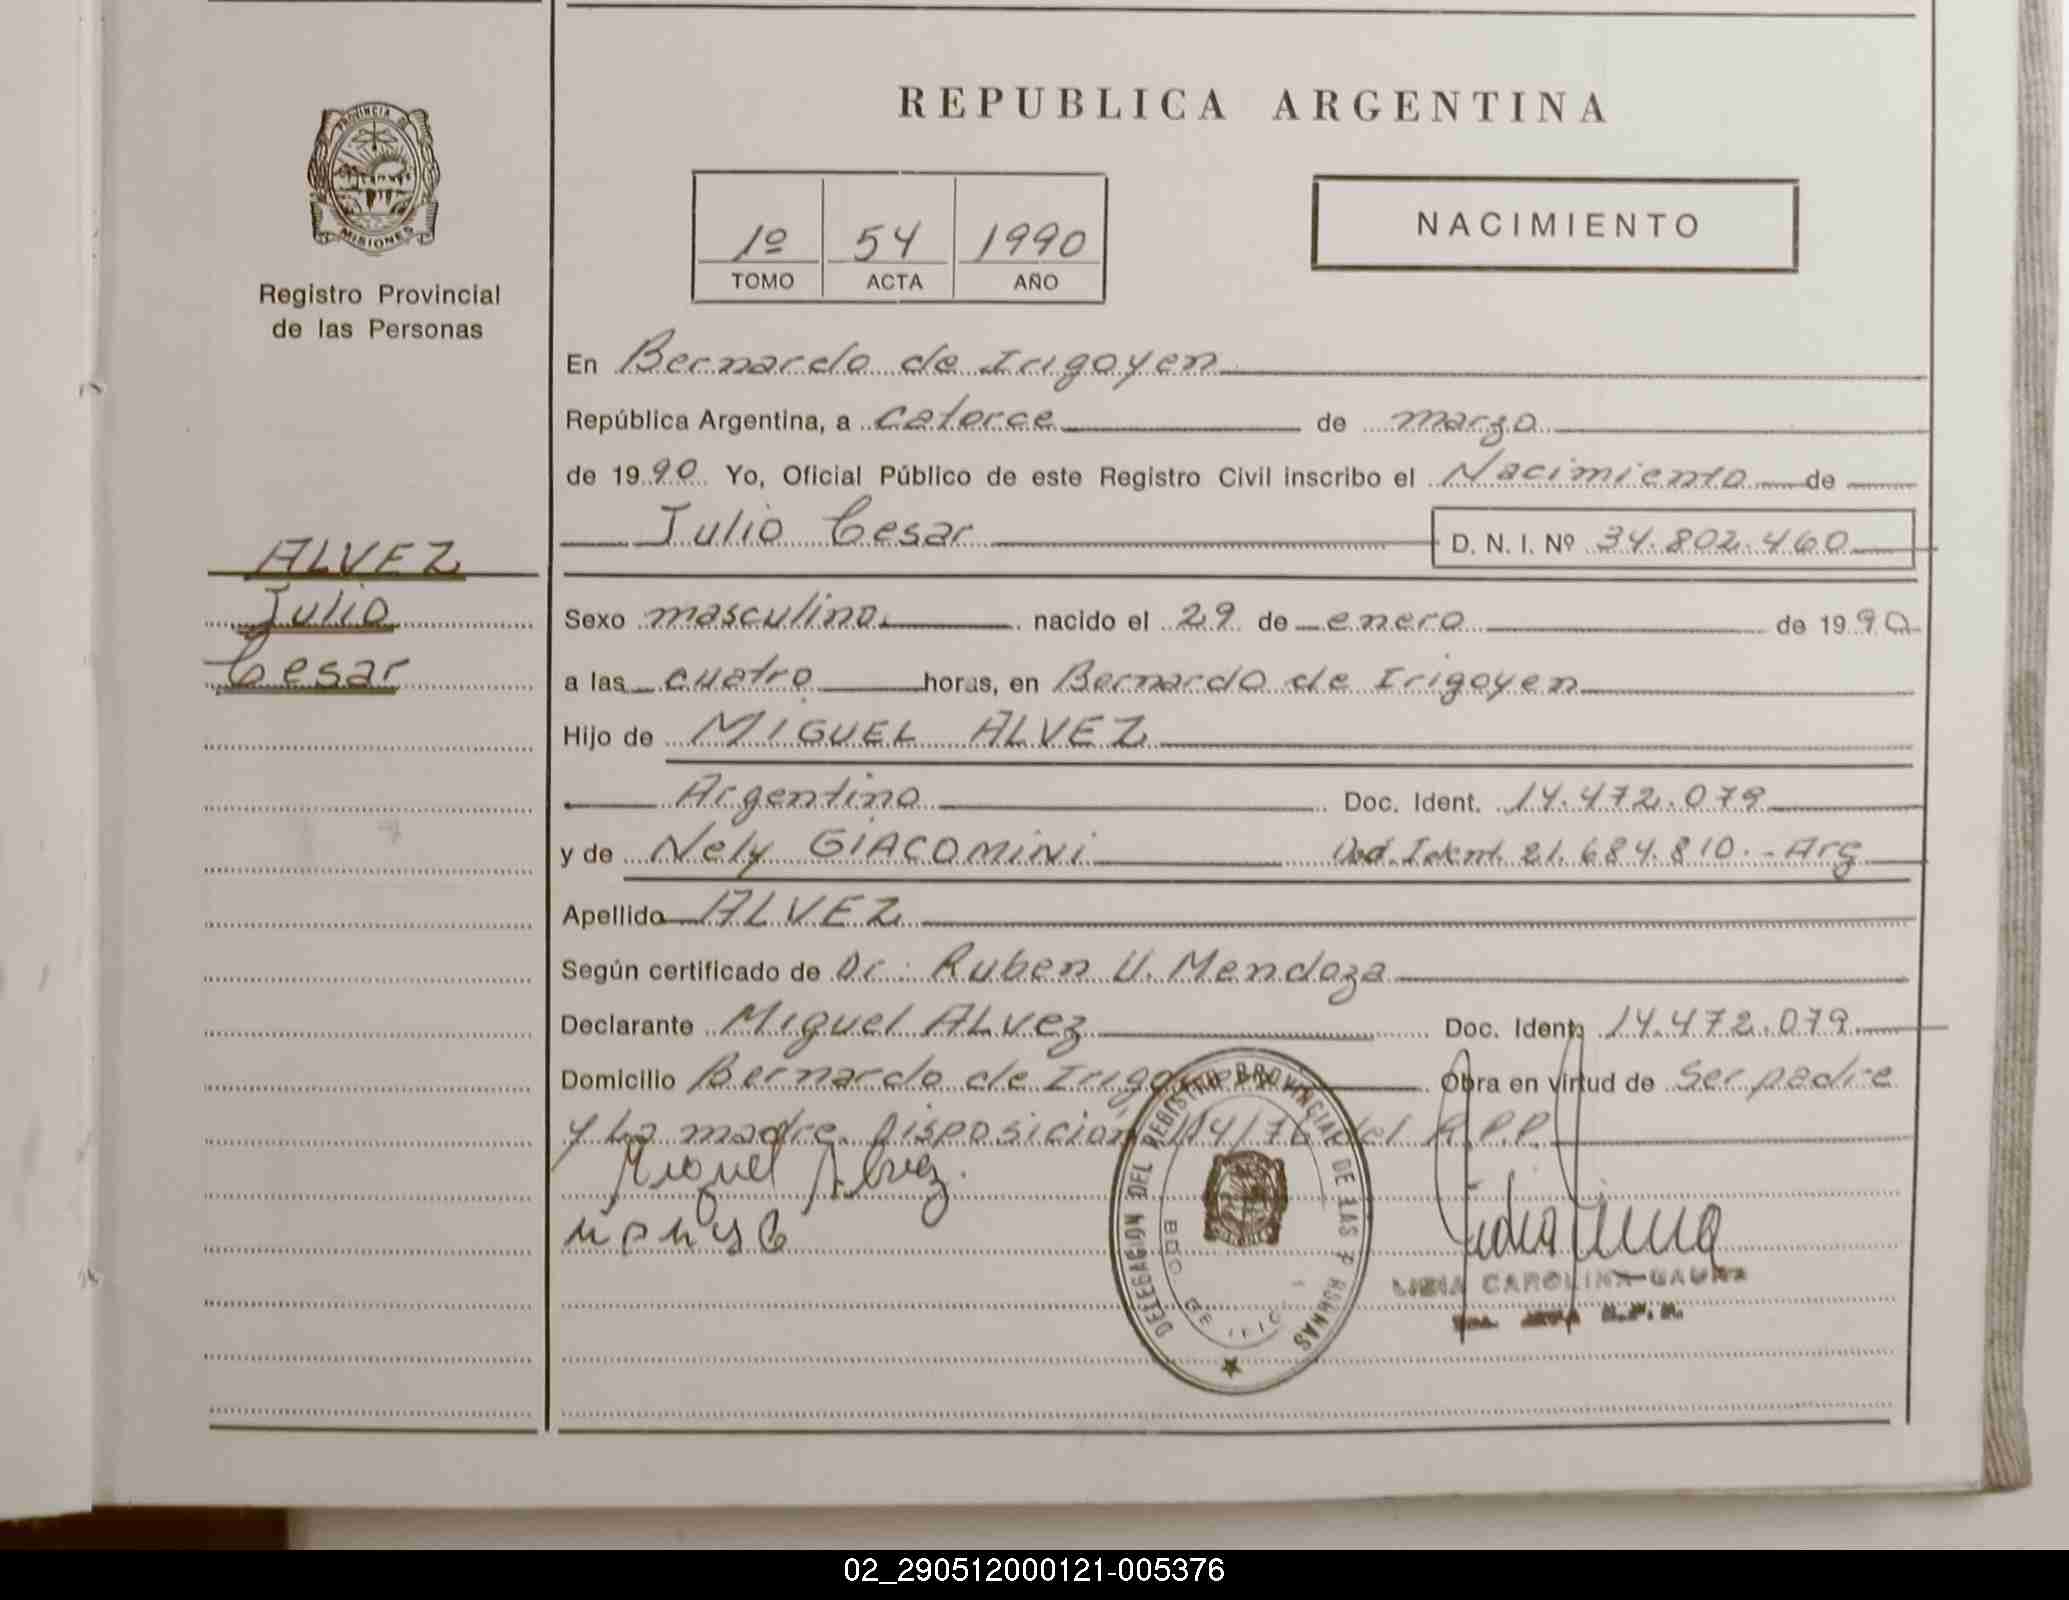 PROVINCIA DE
MISIONES
Registro Provincial
de las Personas
ALVEZ
Julio
Cesar
REPUBLICA ARGENTINA
1º 54 1990
TOMO ACTA AÑO
NACIMIENTO
En Bernardo de Irigoyen
República Argentina, a catorce de marzo
de 1990 Yo, Oficial Público de este Registro Civil inscribo el Nacimiento de
Julio Cesar D. N. I. Nº 34.802.460
Sexo masculino nacido el 29 de enero de 1990
a las cuatro horas, en Bernardo de Irigoyen
Hijo de MIGUEL ALVEZ
Argentino Doc. Ident. 14.472.079
y de Nely GIACOMINI Dod. Ident. 21.684.810.- Arg
Apellido ALVEZ
Según certificado de Dr. Ruben U. Mendoza
Declarante Miguel ALVEZ Doc. Ident. 14.472.079
Domicilio Bernardo de Irigoyen Obra en virtud de Ser padre
y La madre. Disposicion 114/76 del R.P.P.
Miguel Alvez.
DELEGACION DEL REGISTRO PROVINCIAL DE LAS PERSONAS
BDO DE
LIDIA CAROLINA GAUNA
02_290512000121-005376